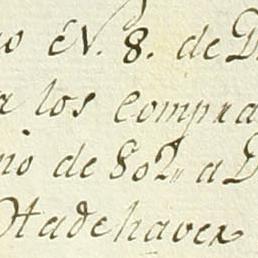 o EN. 8. de D
a los compra
no de 802 a D
Ha de haver